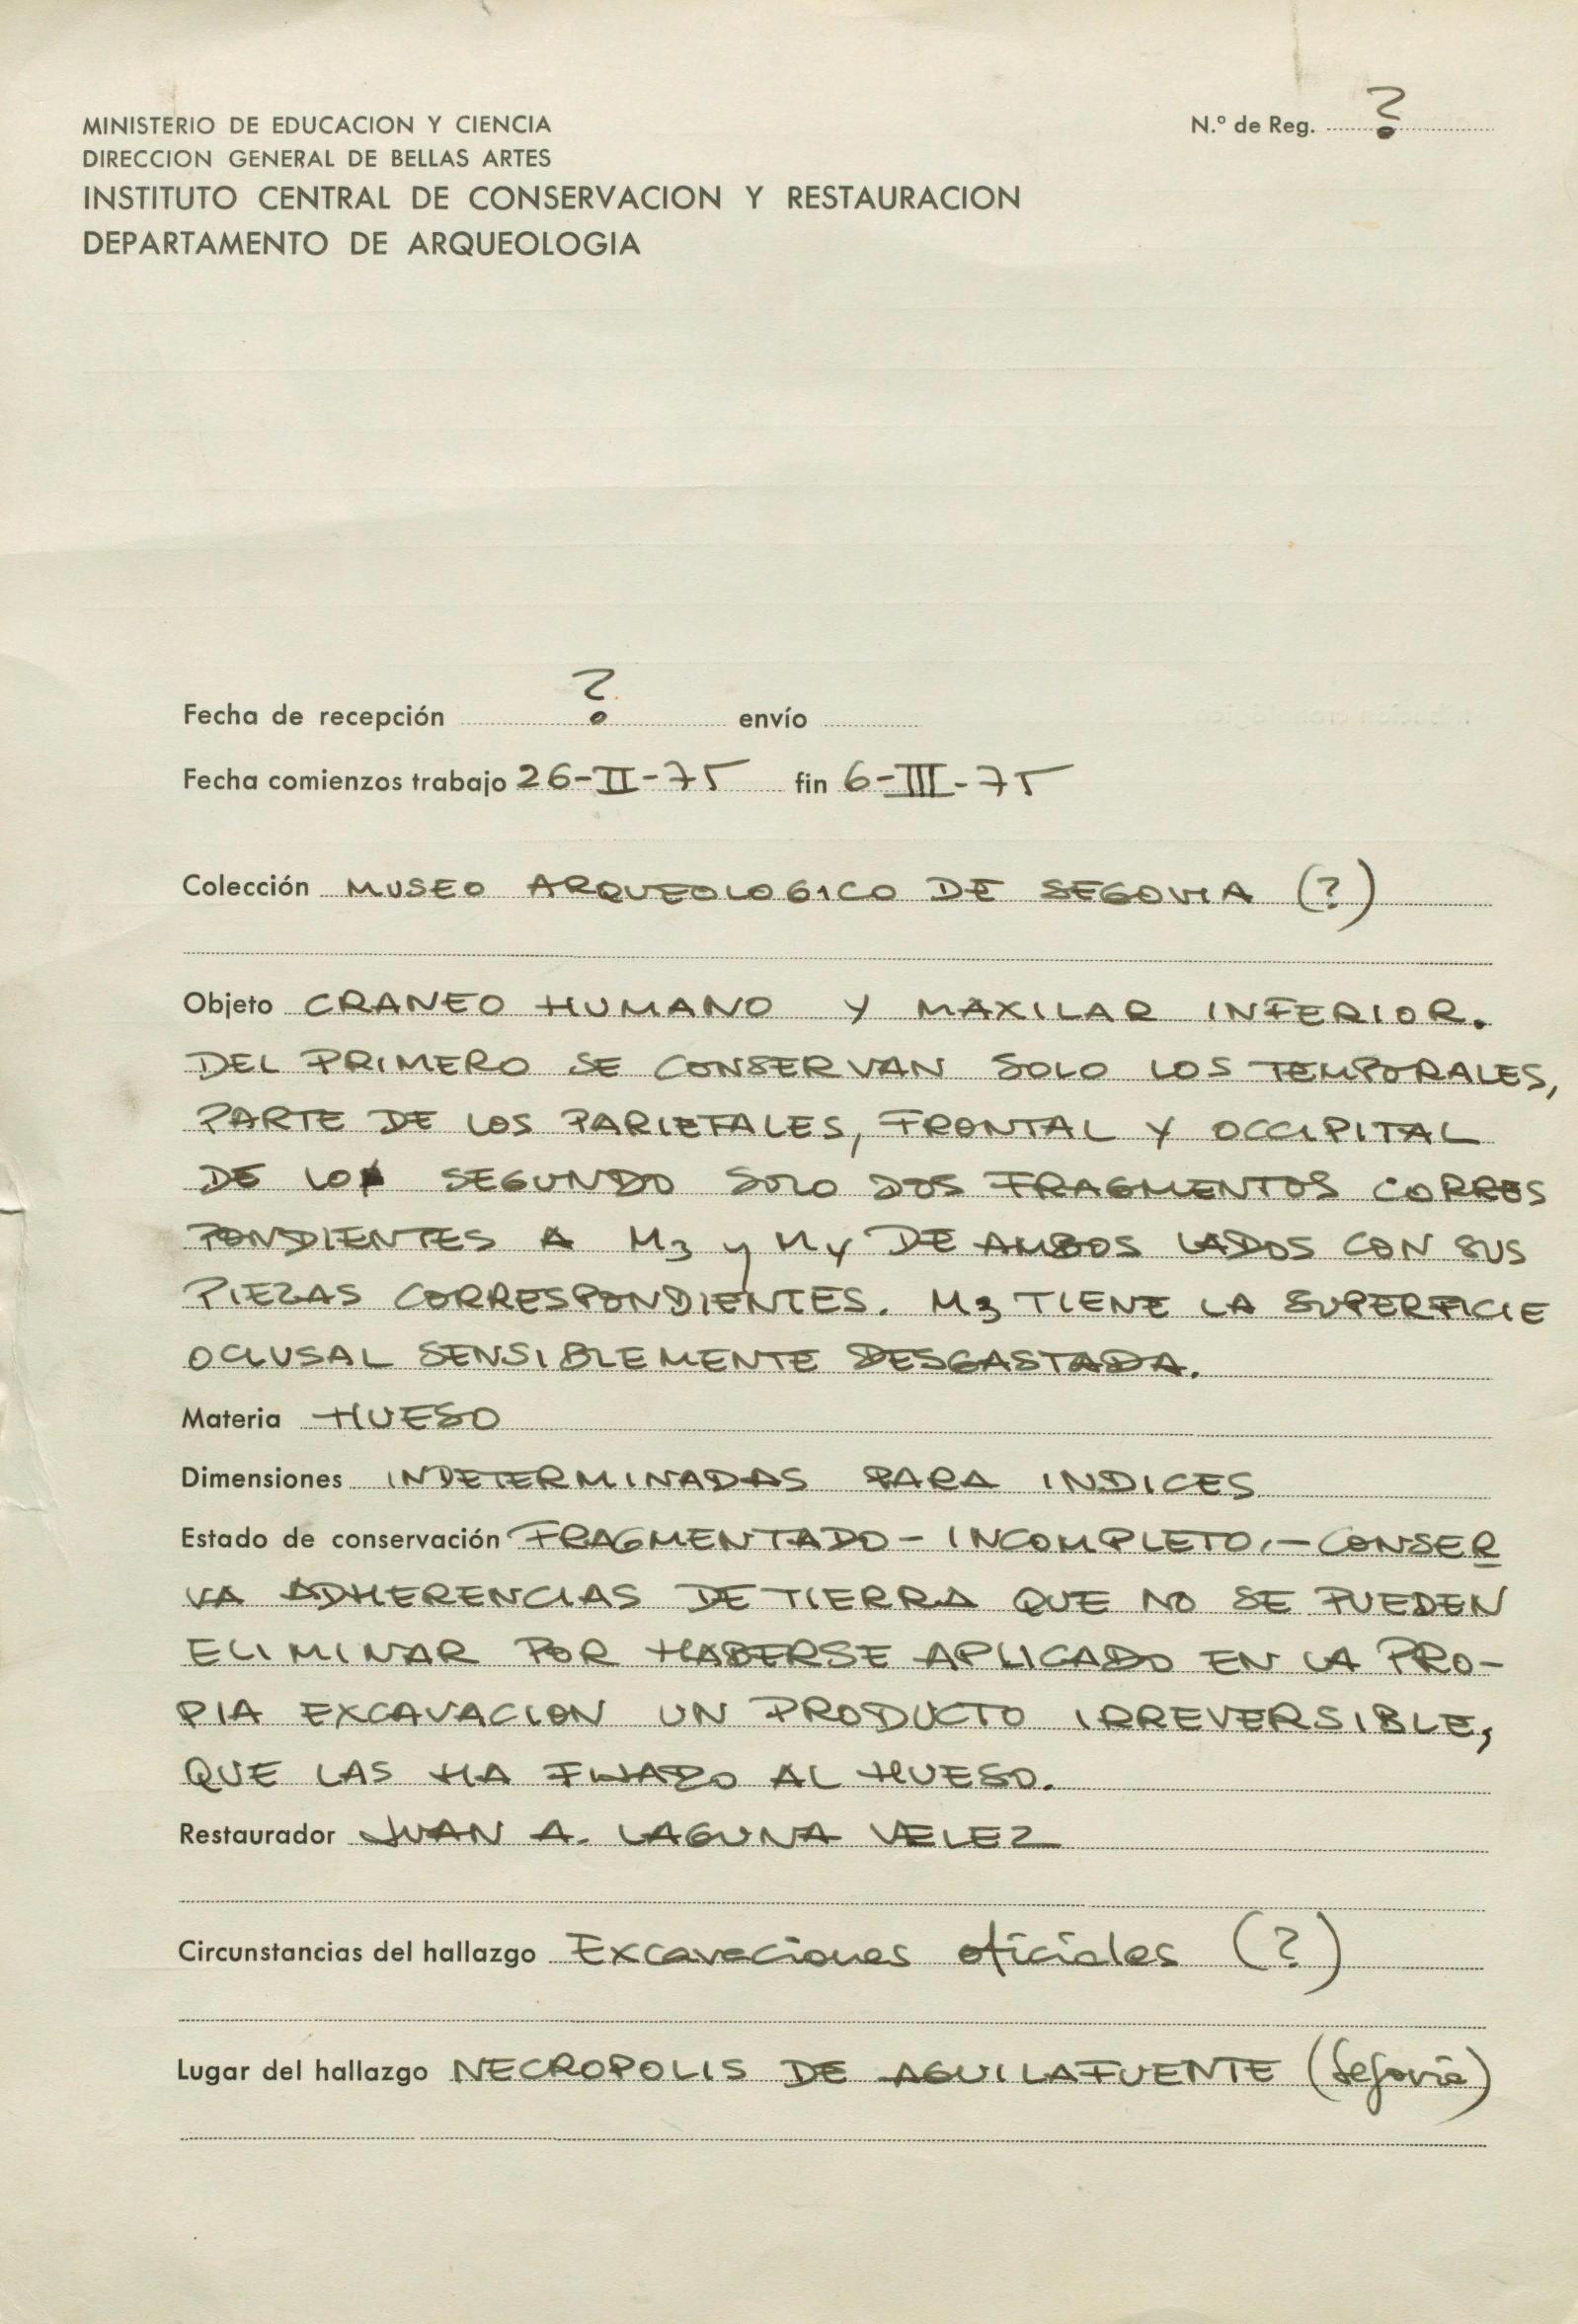 MINISTERIO DE EDUCACION Y CIENCIA
N.º de Reg. ?
DIRECCION GENERAL DE BELLAS ARTES
INSTITUTO CENTRAL DE CONSERVACION Y RESTAURACION
DEPARTAMENTO DE ARQUEOLOGIA
Fecha de recepción ? envío
Fecha comienzos trabajo 26-II-75 fin 6-III-75
Colección MUSEO ARQUEOLOGICO DE SEGOVIA (?)
Objeto CRANEO HUMANO Y MAXILAR INFERIOR.
DEL PRIMERO SE CONSERVAN SOLO LOS TEMPORALES,
PARTE DE LOS PARIETALES, FRONTAL Y OCCIPITAL
DE LO SEGUNDO SOLO DOS FRAGMENTOS CORRES
PONDIENTES A M3 y M4 DE AMBOS LADOS CON SUS
PIEZAS CORRESPONDIENTES. M3 TIENE LA SUPERFICIE
OCLUSAL SENSIBLEMENTE DESGASTADA.
Materia HUESO
Dimensiones INDETERMINADAS PARA INDICES
Estado de conservación FRAGMENTADO - INCOMPLETO.- CONSER
VA ADHERENCIAS DE TIERRA QUE NO SE PUEDEN
ELIMINAR POR HABERSE APLICADO EN LA PRO-
PIA EXCAVACION UN PRODUCTO IRREVERSIBLE,
QUE LAS HA FIJADO AL HUESO.
Restaurador JUAN A. LAGUNA VELEZ
Circunstancias del hallazgo Excavaciones oficiales (?)
Lugar del hallazgo NECROPOLIS DE AGUILAFUENTE (Segovia)